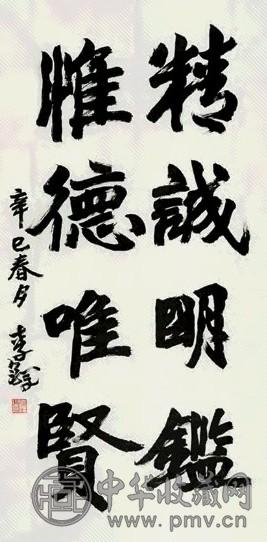 精誠明鑑
惟德唯賢
辛巳春月 李
中华收藏网
www.pmv.cn